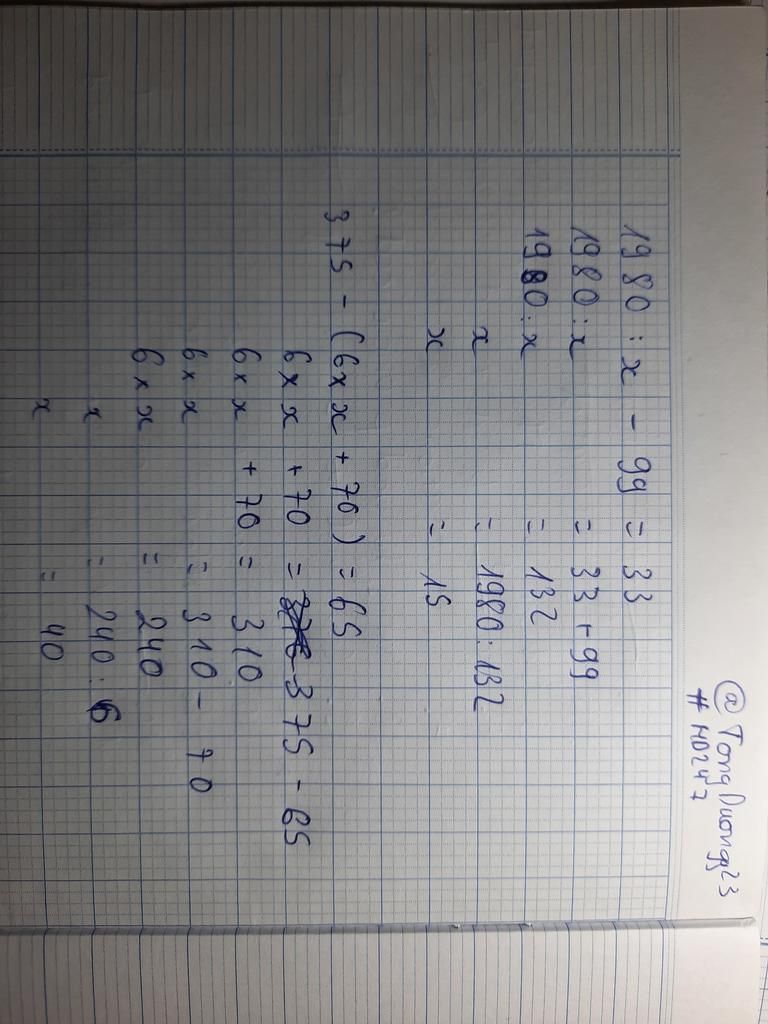 @TongDuongg23
#HD247
1980 : x - 99 = 33
1980 : x = 33 + 99
1980 : x = 132
x = 1980 : 132
x = 15
375 - (6 x x + 70) = 65
6 x x + 70 = 375 - 65
6 x x + 70 = 310
6 x x = 310 - 70
6 x x = 240
x = 240 : 6
x = 40